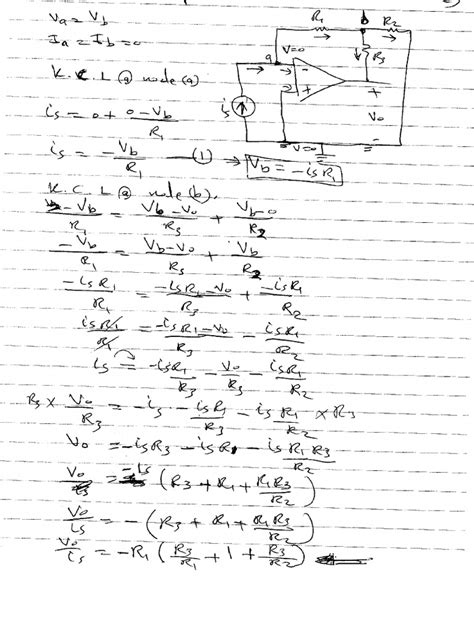 Va = Vb
Ia = Ib = 0
K.C.L @ node (a)
is = 0 + 0 - Vb / R1
is = -Vb / R1 — (1) → Vb = -is R1
K.C.L @ node (b).
-Vb / R1 = Vb - Vo / R3 + Vb - 0 / R2
-Vb / R1 = Vb - Vo / R3 + Vb / R2
-is R1 / R1 = -is R1 - Vo / R3 + -is R1 / R2
is R1 / R1 = -is R1 - Vo / R3 - is R1 / R2
is = -is R1 / R3 - Vo / R3 - is R1 / R2
R3 × Vo / R3 = -is - is R1 / R3 - is R1 / R2 × R3
Vo = -is R3 - is R1 - is R1 R3 / R2
Vo / is = -is (R3 + R1 + R1 R3 / R2)
Vo / is = - (R3 + R1 + R1 R3 / R2)
Vo / is = -R1 (R3 / R1 + 1 + R3 / R2)
R1
b
R2
R3
V=0
a
-
+
is
+
Vo
-
V=0